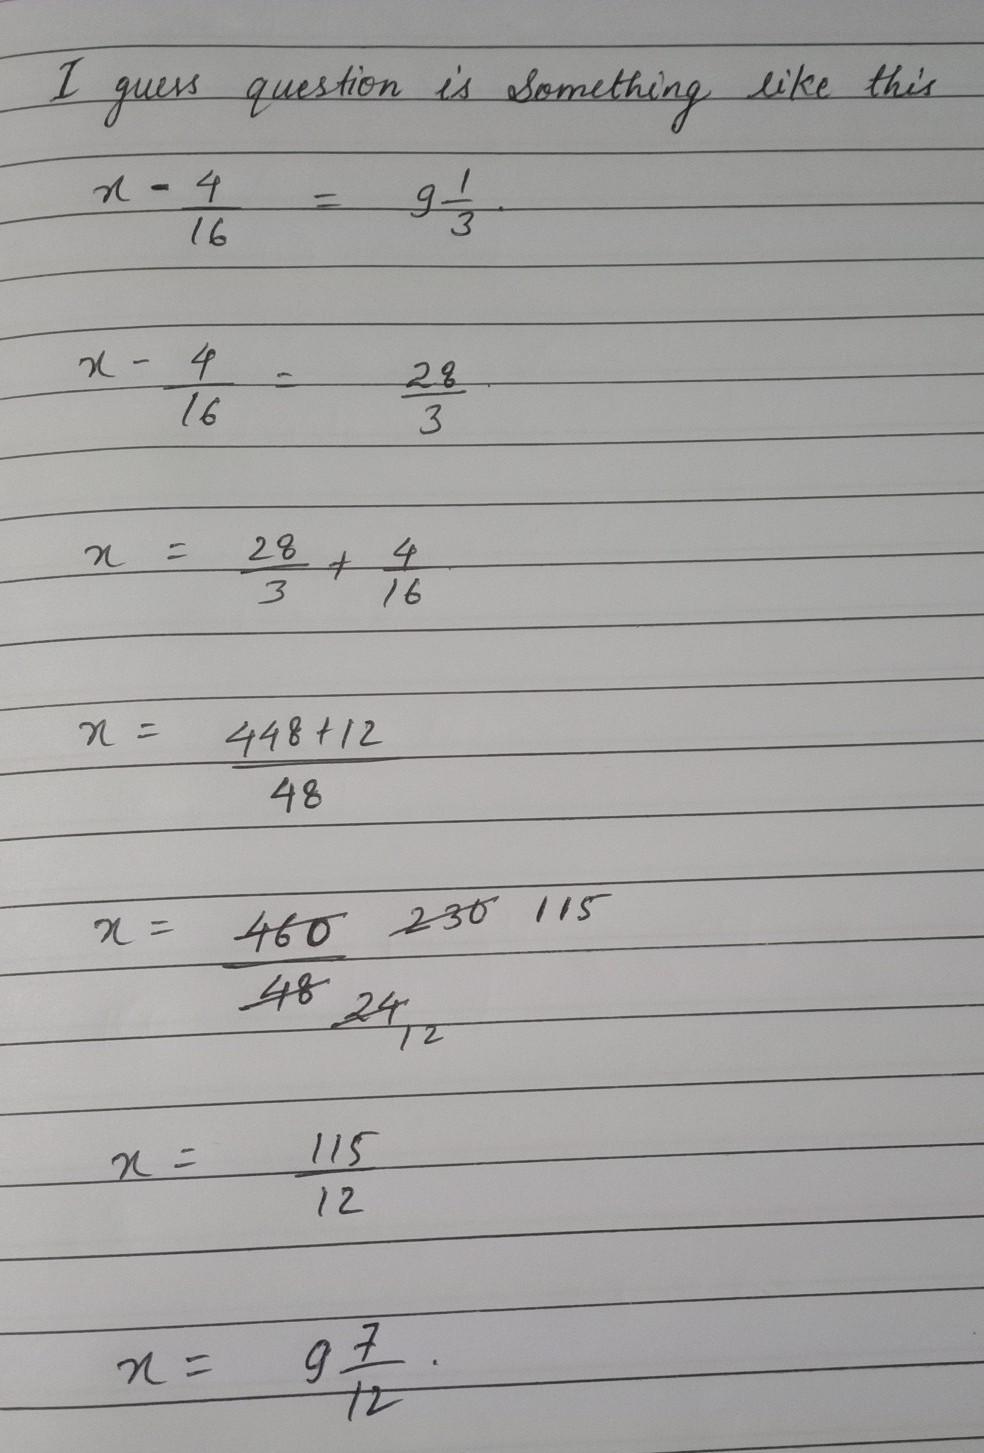 I guess question is Something like this
x - 4/16 = 9 1/3.
x - 4/16 = 28/3.
x = 28/3 + 4/16
x = 448+12/48
x = 460/48 230/24 115/12
x = 115/12
x = 9 7/12.